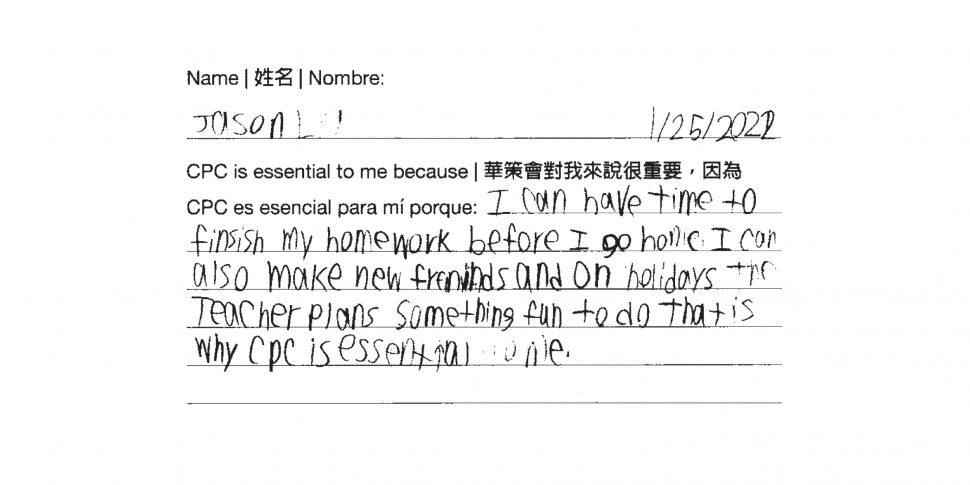 Name | 姓名 | Nombre:
Jason 1/25/2022
CPC is essential to me because | 華策會對我來說很重要，因為
CPC es esencial para mí porque: I can have time to
finsish my homework before I go home. I can
also make new and on holidays the
Teacher plans something fun to do that is
why CPC is essential to me.